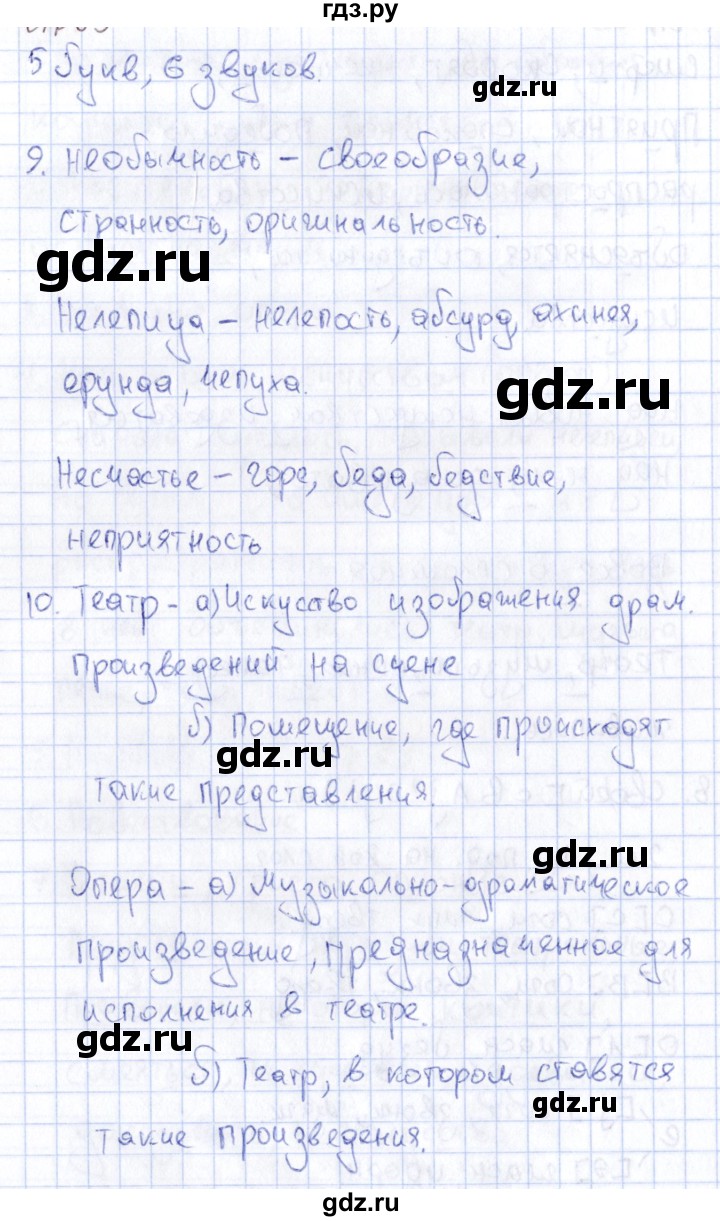 гдз.ру
5 букв, 6 звуков.
gdz.ru
9. Необычность – своеобразие,
странность, оригинальность.
gdz.ru
Нелепица – нелепость, абсурд, ахинея,
ерунда, чепуха.
gdz.ru
Несчастье – горе, беда, бедствие,
неприятность
10. Театр – а) Искусство изображения драм.
произведений на сцене
б) Помещение, где происходят
gdz.ru
такие представления.
gdz.ru
Опера – а) Музыкально-драматическое
произведение, предназначенное для
исполнения в театре.
gdz.ru
б) Театр, в котором ставятся
gdz.ru
такие произведения.
gdz.ru